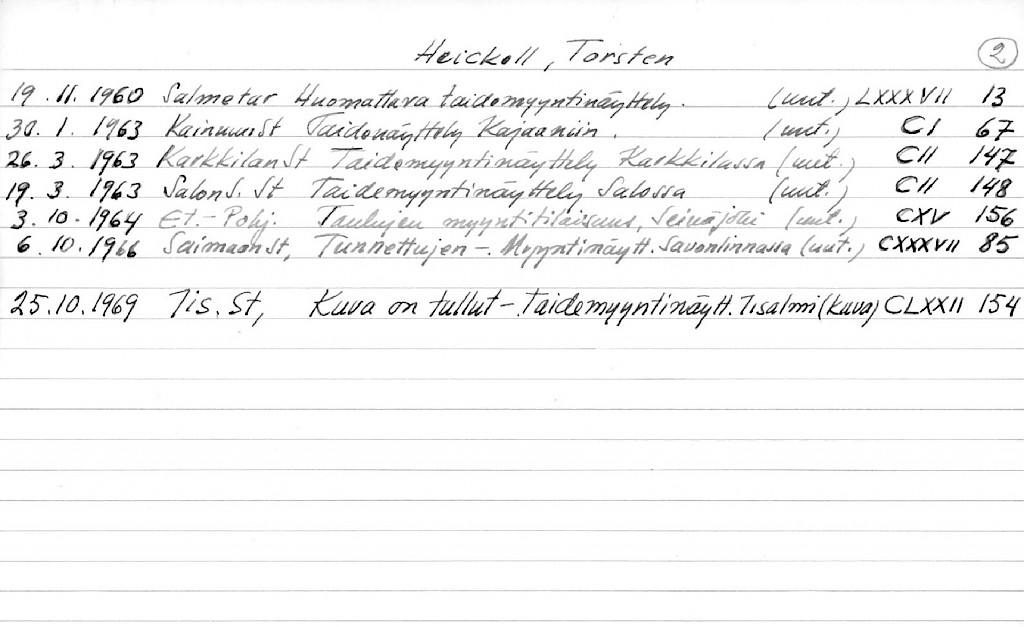 Heickell, Torsten 2
19.11.1960 Salmetar Huomattava taidemyyntinäyttely. (uut.) LXXXVII 13
30.1.1963 Kainuun St Taidenäyttely Kajaaniin. (uut.) CI 67
26.3.1963 Karkkilan St Taidemyyntinäyttely Karkkilassa (uut.) CII 147
19.3.1963 Salon S. St Taidemyyntinäyttely Salossa (uut.) CII 148
3.10.1964 Et.-Pohj. Taulujen myyntitilaisuus, Seinäjoki (uut.) CXV 156
6.10.1966 Saimaan St, Tunnettujen - Myyntinäytt. Savonlinnassa (uut.) CXXXVII 85
25.10.1969 Iis. St, Kuva on tullut - Taidemyyntinäytt. Iisalmi (kuva) CLXXII 154